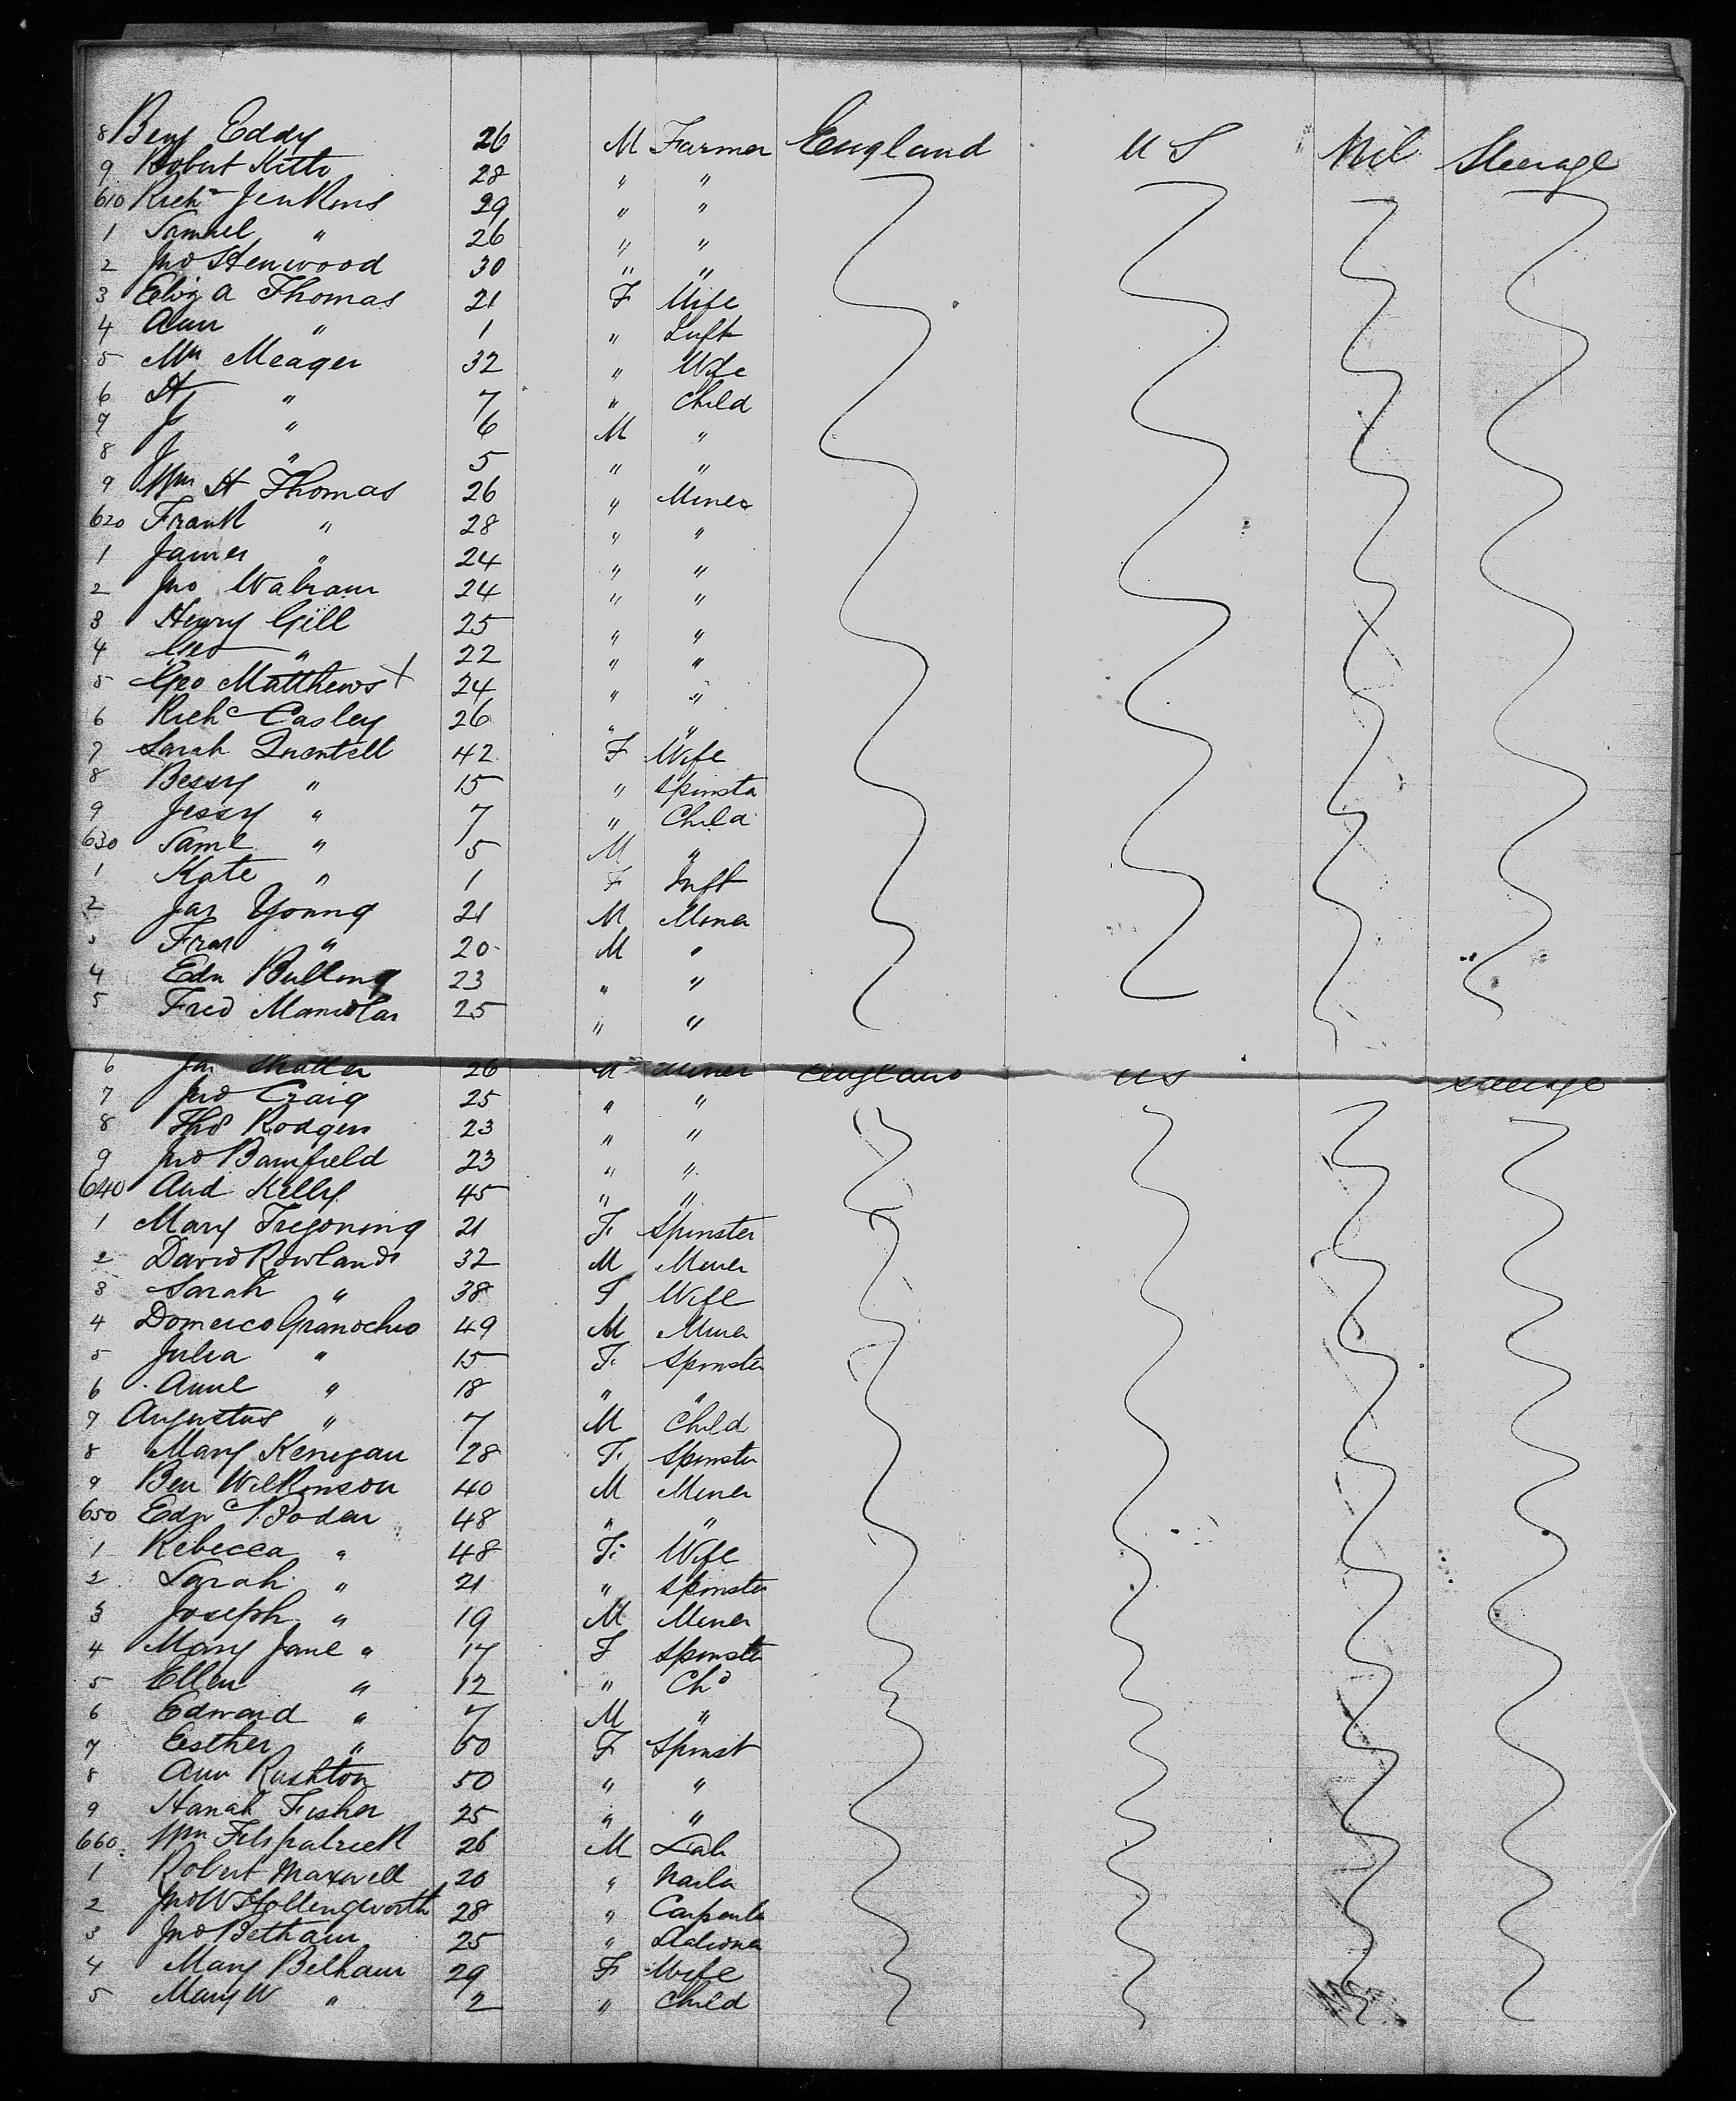 8 Benj Eddy 26 M Farmer England U S Nil Steerage
9 Robert Kitto 28 " "
610 Rich^d Jenkins 29 " "
1 Samuel " 26 " "
2 Jno Henwood 30 " "
3 Eliz A Thomas 21 F Wife
4 Ann " 1 " Inft
5 Mrs Meager 32 " Wife
6 H " 7 " Child
7 J " 6 M "
8 J " 5 " "
9 Wm H Thomas 26 " Miner
620 Frank " 28 " "
1 James " 24 " "
2 Jno 24 " "
3 Henry Gill 25 " "
4 Geo " 22 " "
5 Geo Matthews X 24 " "
6 Rich^d Casley 26 " "
7 Sarah 42 F Wife
8 Bessy " 15 " Spinster
9 Jessy " 7 " Child
630 Saml " 5 M "
1 Kate " 1 F Inft
2 Jas Young 21 M Miner
3 Fras " 20 M "
4 Edn 23 " "
5 Fred 25 " "
6 Jas 26 M Miner England US Steerage
7 Jno Craig 25 " "
8 Thos Rodgers 23 " "
9 Jno Bamfield 23 " "
640 And Kelly 45 " "
1 Mary Tregoning 21 F Spinster
2 David Rowlands 32 M Miner
3 Sarah " 38 F Wife
4 Domeico Granochio 49 M Miner
5 Julia " 15 F Spinster
6 Anne " 18 " "
7 Augustus " 7 M Child
8 Mary Kerrigan 28 F Spinster
9 Ben Wilkinson 40 M Miner
650 Edw^d Boden 48 " "
1 Rebecca " 48 F Wife
2 Sarah " 21 " Spinster
3 Joseph " 19 M Miner
4 Mary Jane " 17 F Spinster
5 Ellen " 12 " Ch^d
6 Edward " 7 M "
7 Esther " 60 F Spinst
8 Ann Rushton 50 " "
9 Hanah Fisher 25 " "
660 Wm Fitspatrick 26 M Lab
1 Robert Maxwell 20 "
2 Jno W Hollengworth 28 " Carpenter
3 Jno Betham 25 " Stationer
4 Mary Belham 29 F Wife
5 Mary W " 2 " Child